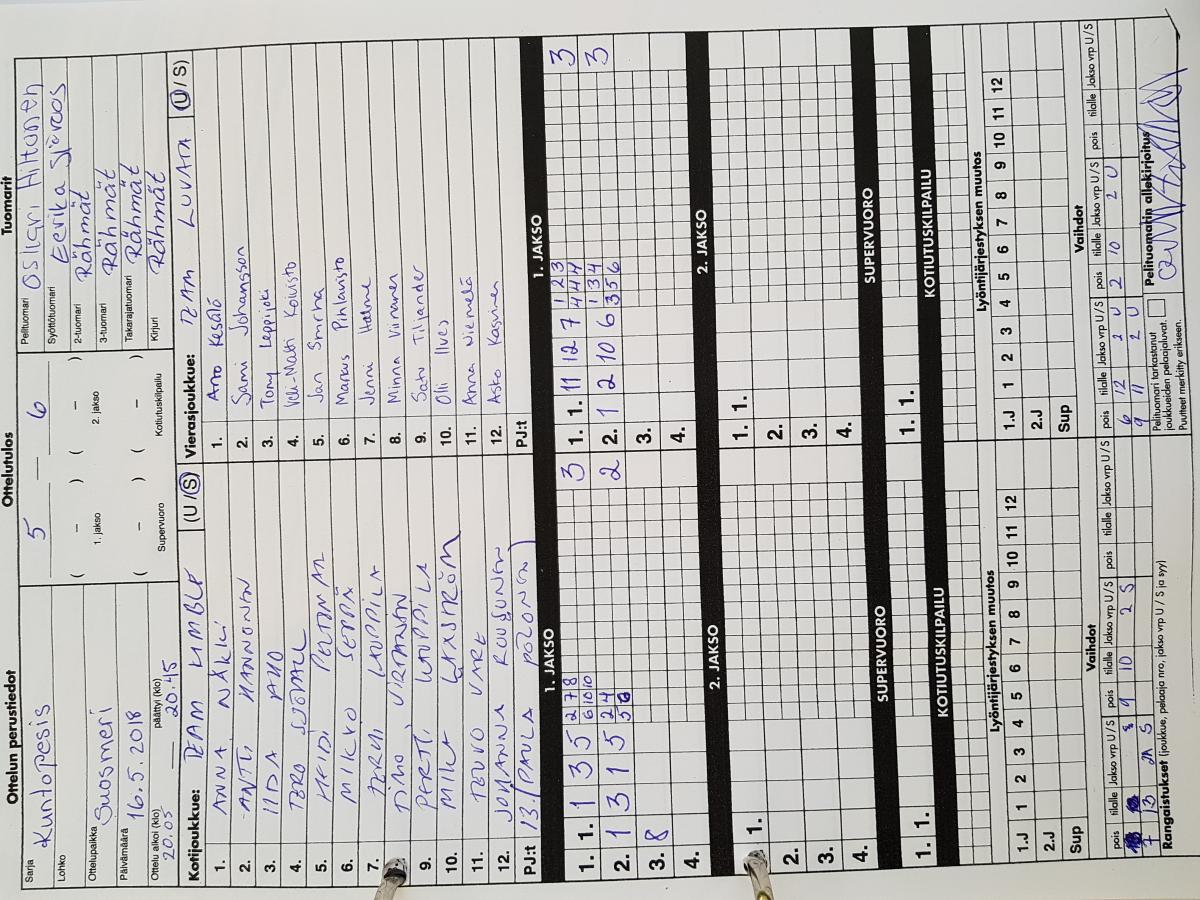 Ottelun perustiedot
Sarja Kuntopesis
Lohko
Ottelupaikka Suosmeri
Päivämäärä 16.5.2018
Ottelu alkoi (klo) päättyi (klo)
20.05 20.45
Ottelutulos
5 — 6
( – ) ( – )
1. jakso 2. jakso
( – ) ( – )
Supervuoro Kotiutuskilpailu
Tuomarit
Pelituomari Hiltonen
Syöttötuomari Eerika
2-tuomari Rähmät
3-tuomari Rähmät
Takarajatuomari Rähmät
Kirjuri Rähmät
Kotijoukkue: TEAM (U / S)
1. ANNA NÄKKI
2. ANTTI HANNONEN
3. IIDA AHO
4. TERO
5. HEIDI
6. MIKKO SEPPÄ
7. KAUPPILA
8. TIMO
9. PERTTI KAUPPILA
10. MIKA
11. TEUVO VARE
12. JOHANNA ROUSUNEN
PJ:t 13. (PAULA POLONEN)
Vierasjoukkue: TEAM LUVATA (U / S)
1. Arto Kesälö
2. Sami Johansson
3. Tony Leppijoki
4. Veli-Matti Koivisto
5. Jan Smicha
6. Markus Pihlavisto
7. Jenni Halme
8. Minna Virtanen
9. Satu Tiljander
10. Olli Ilves
11. Anna Niemelä
12. Asko Kasvinen
PJ:t
1. JAKSO 1. JAKSO
2 7 8
1. 1. 1 3 5 6 10 10 3
2 4
2. 1 3 1 5 5 6 2
3. 8
4.
1 2 3
1. 1. 11 12 7 4 4 4 3
1 3 4
2. 1 2 10 6 3 5 6 3
3.
4.
2. JAKSO 2. JAKSO
1. 1.
2.
3.
4.
1. 1.
2.
3.
4.
SUPERVUORO SUPERVUORO
1. 1. 1. 1.
KOTIUTUSKILPAILU KOTIUTUSKILPAILU
Lyöntijärjestyksen muutos Lyöntijärjestyksen muutos
1.J 1 2 3 4 5 6 7 8 9 10 11 12
2.J
Sup
1.J 1 2 3 4 5 6 7 8 9 10 11 12
2.J
Sup
Vaihdot Vaihdot
pois tilalle Jakso vrp U / S pois tilalle Jakso vrp U / S pois tilalle Jakso vrp U / S
9 10 2 S
7 13 S
pois tilalle Jakso vrp U / S pois tilalle Jakso vrp U / S pois tilalle Jakso vrp U / S
6 12 2 U 2 10 2 U
9 11 2 U
Rangaistukset (joukkue, pelaaja nro, jakso vrp U / S ja syy)
Pelituomari tarkastanut
joukkueiden pelaajaluvat.
Puutteet merkitty erikseen.
Pelituomarin allekirjoitus